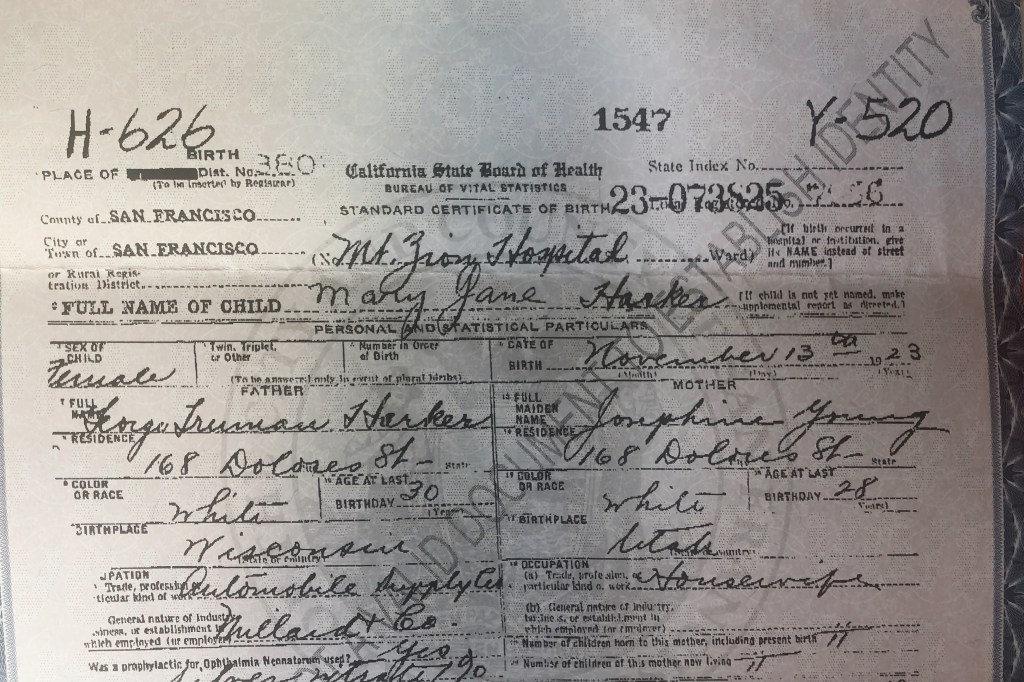 H-626
1547
Y-520
BIRTH
PLACE OF Dist. No. 380
(To be inserted by Registrar)
California State Board of Health
BUREAU OF VITAL STATISTICS
State Index No.
County of SAN FRANCISCO
STANDARD CERTIFICATE OF BIRTH 23-073835
City or
Town of SAN FRANCISCO
Mt. Zion Hospital Ward)
[If birth occurred in a
hospital or institution, give
its NAME instead of street
and number.]
or Rural Regis-
tration District
FULL NAME OF CHILD Mary Jane Harker
[If child is not yet named, make
supplemental report as directed.]
PERSONAL AND STATISTICAL PARTICULARS
SEX OF
CHILD
Female
Twin, Triplet,
or Other
Number in Order
of Birth
(To be answered only in event of plural births)
DATE OF
BIRTH November 13 th 1923
(Month) (Day) (Year)
FATHER
FULL
NAME
George Truman Harker
RESIDENCE
168 Dolores St State
COLOR
OR RACE
White
AGE AT LAST
BIRTHDAY 30
(Years)
BIRTHPLACE
Wisconsin
(State or country)
OCCUPATION
Trade, profession Automobile Supply Co
ticular kind of work
General nature of industry
siness, or establishment in
which employed (or employer) Millard & Co.
Was a prophylactic for Ophthalmia Neonatorum used? Yes
Silver nitrate 1%
MOTHER
FULL
MAIDEN
NAME Josephine Young
RESIDENCE
168 Dolores St State
COLOR
OR RACE
White
AGE AT LAST
BIRTHDAY 28
(Years)
BIRTHPLACE
Utah
OCCUPATION
(a) Trade, profession, or
particular kind of work Housewife
(b) General nature of industry,
business, or establishment in
which employed (or employer)
Number of children born to this mother, including present birth 11
Number of children of this mother now living 11
VALID DOCUMENT TO ESTABLISH IDENTITY